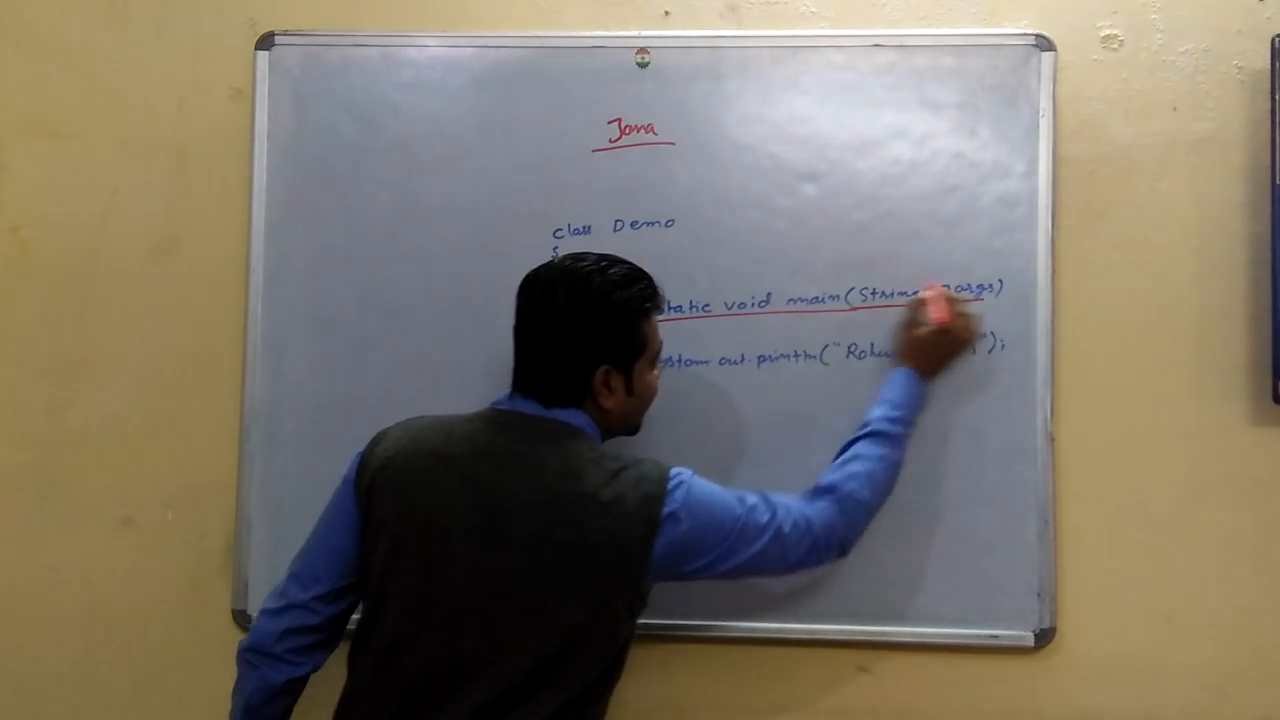 Java
class Demo
{
static void main(String args)
System.out.println("
");